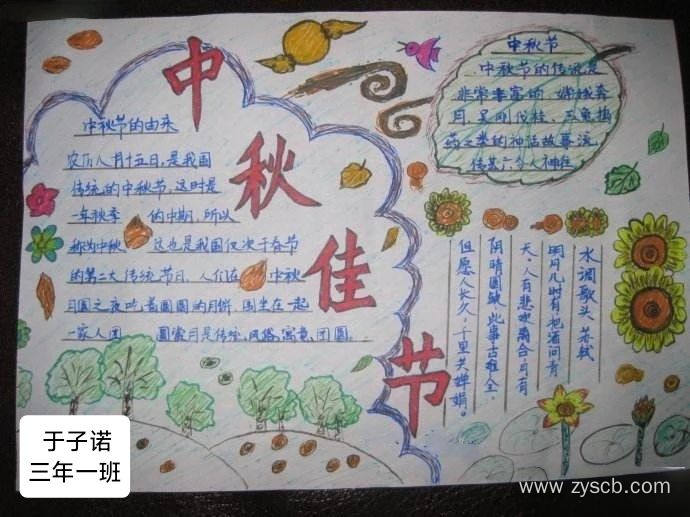 中秋佳节
中秋节的由来
农历八月十五日,是我国
传统的中秋节,这时是
一年秋季 的中期,所以
称为中秋 这也是我国仅次于春节
的第二大传统节日。人们在 中秋
月圆之夜吃着圆圆的月饼,围坐在一起
一家人团 圆赏月是传统风俗,寓意团圆。
中秋节
中秋节的传说是
非常丰富的,嫦娥奔
月,吴刚伐桂,玉兔捣
药之类的神话故事流
传甚广
水调歌头 苏轼
明月几时有把酒问青
天,人有悲欢离合,月有
阴晴圆缺,此事古难全。
但愿人长久,千里共婵娟。
于子诺
三年一班
www.zyscb.com